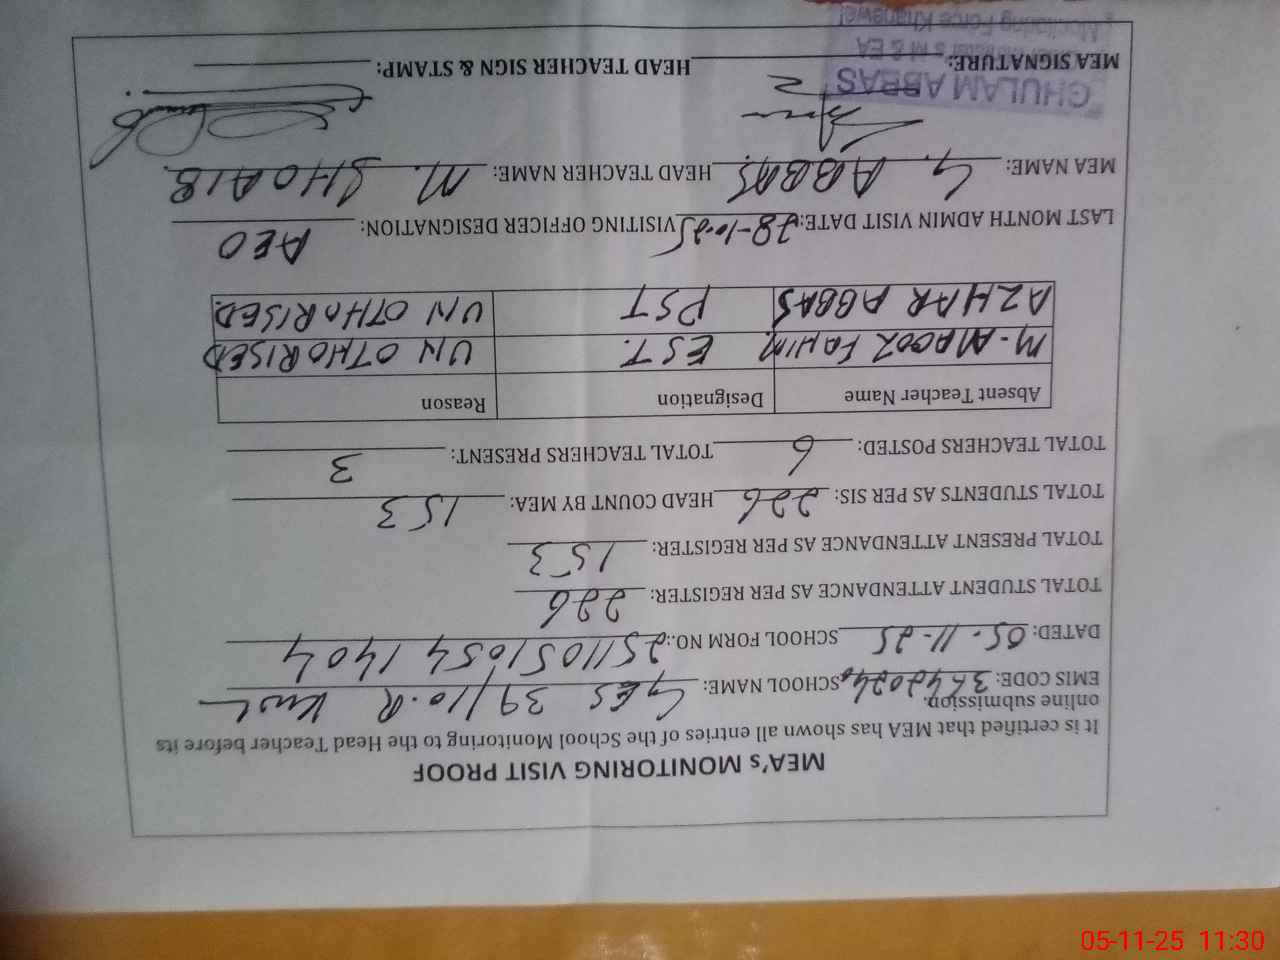 MEA's MONITORING VISIT PROOF
It is certified that MEA has shown all entries of the School Monitoring to the Head Teacher before its
online submission.
EMIS CODE: SCHOOL NAME: GES 39/10.R
DATED: 05.11-25 SCHOOL FORM NO.: 25110510541404
TOTAL STUDENT ATTENDANCE AS PER REGISTER: 226
TOTAL PRESENT ATTENDANCE AS PER REGISTER: 153
TOTAL STUDENTS AS PER SIS: 226 HEAD COUNT BY MEA: 153
TOTAL TEACHERS POSTED: 6 TOTAL TEACHERS PRESENT: 3
Absent Teacher Name Designation Reason
M. FAHIM EST. UN OTHORISED
AZHAR ABBAS PST UN OTHORISED.
LAST MONTH ADMIN VISIT DATE: 28-10-25 VISITING OFFICER DESIGNATION: AEO
MEA NAME: G. ABBAS. HEAD TEACHER NAME: M. SHOAIB.
MEA SIGNATURE: HEAD TEACHER SIGN & STAMP:
GHULAM ABBAS
M & EA
Monitoring Force Khanewal
05-11-25 11:30